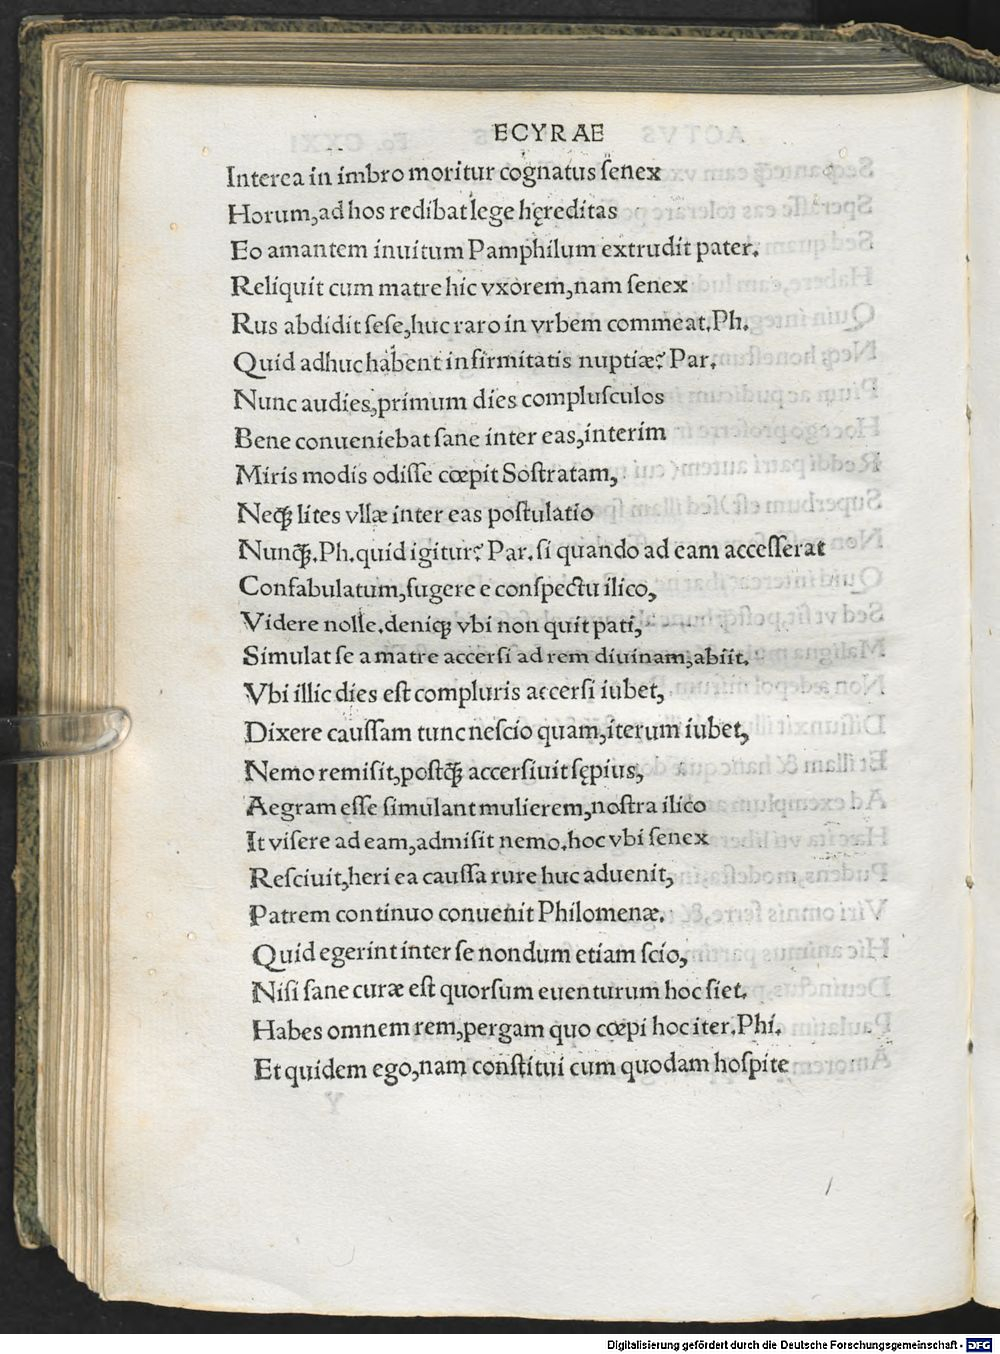 ECYRAE
Interea in imbro moritur cognatus ſenex
Horum, ad hos redibat lege hęreditas
Eo amantem inuitum Pamphilum extrudit pater.
Reliquit cum matre hic vxorem, nam ſenex
Rus abdidit ſeſe, huc raro in vrbem commeat. Ph.
Quid adhuc habent infirmitatis nuptiæ? Par.
Nunc audies, primum dies compluſculos
Bene conueniebat ſane inter eas, interim
Miris modis odiſſe cœpit Soſtratam,
Neqꝫ lites vllæ inter eas poſtulatio
Nunꝗ̃. Ph. quid igitur? Par. ſi quando ad eam acceſſerat
Confabulatum, fugere e conſpectu ilico,
Videre nolle. deniqꝫ vbi non quit pati,
Simulat ſe a matre accerſi ad rem diuinam, abiit.
Vbi illic dies eſt compluris accerſi iubet,
Dixere cauſſam tunc neſcio quam, iterum iubet,
Nemo remiſit, poſtꝗ̃ accerſiuit ſępius,
Aegram eſſe ſimulant mulierem, noſtra ilico
It viſere ad eam, admiſit nemo. hoc vbi ſenex
Reſciuit, heri ea cauſſa rure huc aduenit,
Patrem continuo conuenit Philomenæ.
Quid egerint inter ſe nondum etiam ſcio,
Niſi ſane curæ eſt quorſum euenturum hoc ſiet.
Habes omnem rem, pergam quo cœpi hoc iter. Phi.
Et quidem ego, nam conſtitui cum quodam hoſpite
Digitalisierung gefördert durch die Deutsche Forschungsgemeinschaft - DFG